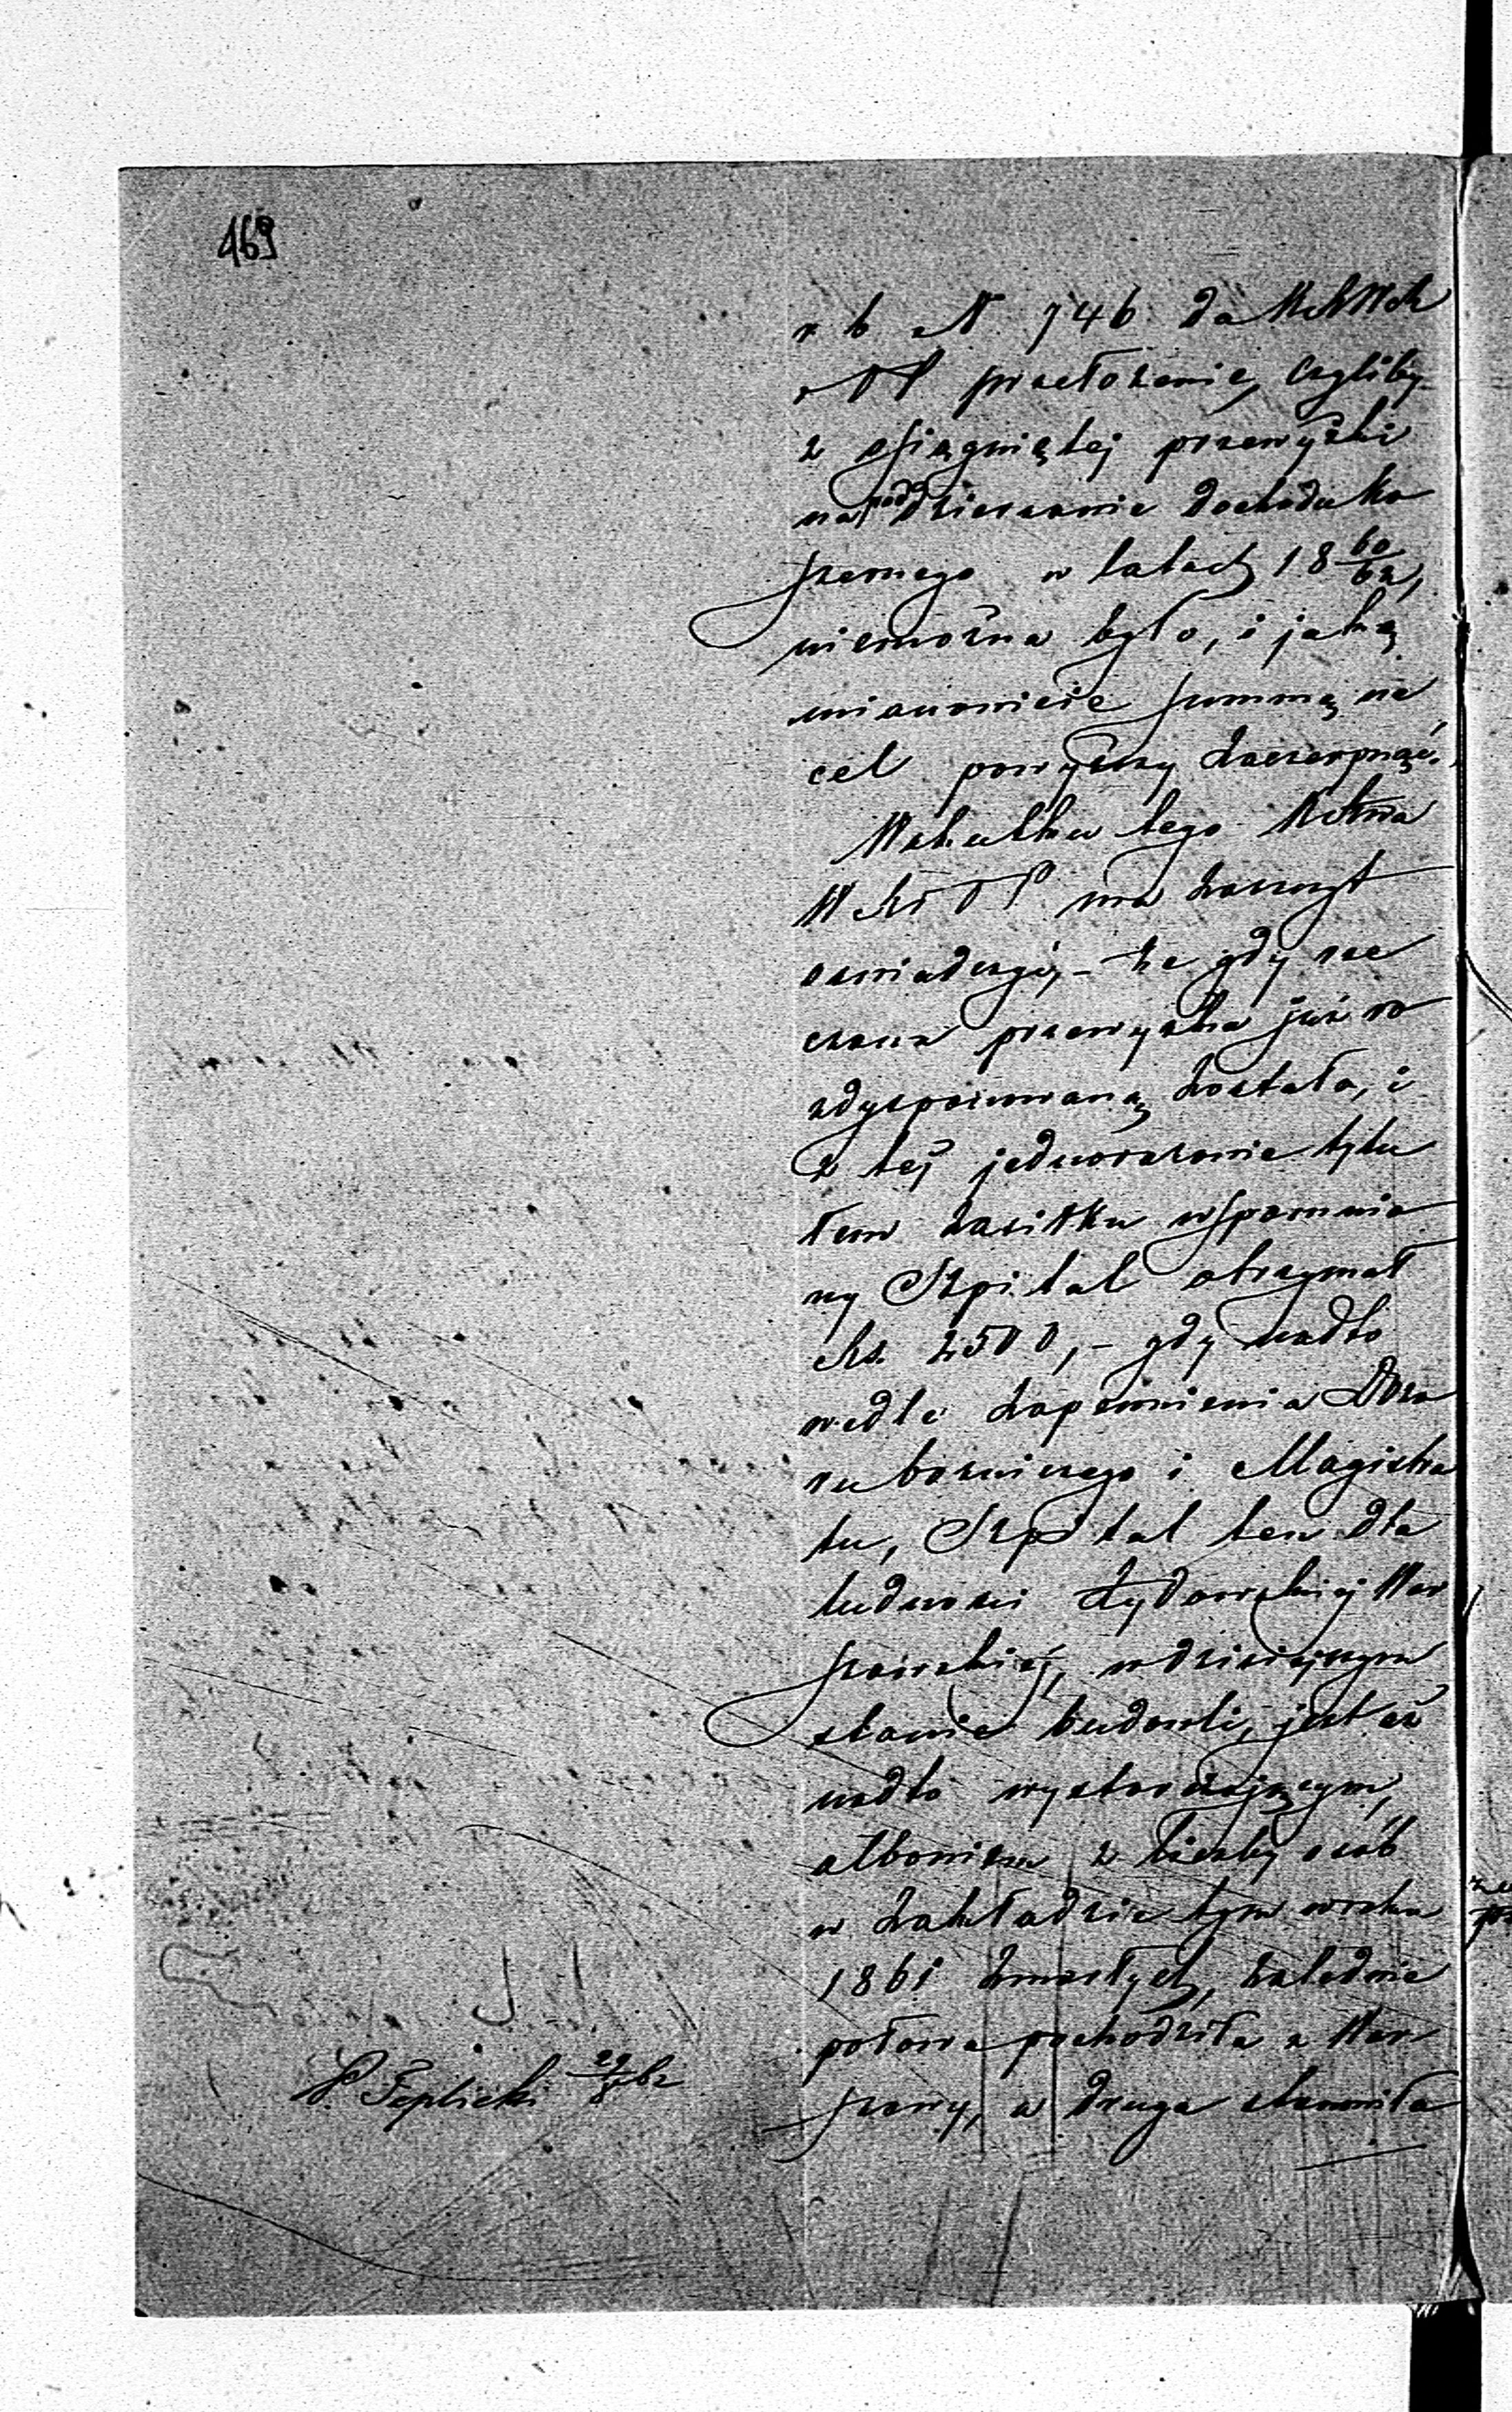 469
r b N 746 do
przełożenie, czyliby
z osiągniętej przewyżki
na poddzierzawie dochodu ko
szernego w latach 18 60/62,
niemożna było, i jaką
mianowicie summę na
cel powyższy zaczerpnąć.
W skutku tego
ma zaszczyt
oswiadczyć, – że gdy rze
czona przewyżka już ro
zdysponowaną została, i
z tej jednorazowie tytu
łem zasiłku wspomnio
ny Szpital otrzymał
Rs. 2500, – gdy nadto
wedle zapewnienia Dozo
ru bożniczego i Magistra
tu, Szpital ten dla
ludności Żydowskiej War
szawskiej, w dzisiejszym
stanie budowli, jest aż
nadto wystarczającym,
albowiem z liczby osób
w zakładzie tym w roku
1861 zmarłych, zaledwie
połowa pochodziła z War
szawy, a druga stanowiła
Teplicki